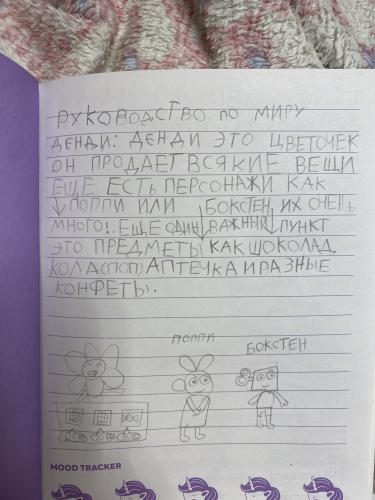 РУКОВОДСТВО ПО МИРУ
ДЕНДИ: ДЕНДИ ЭТО ЦВЕТОЧЕК
ОН ПРОДАЕТ ВСЯКИЕ ВЕЩИ
ЕЩЕ ЕСТЬ ПЕРСОНАЖИ КАК
ПОППИ ИЛИ БОКСТЕН, ИХ ОЧЕНЬ
МНОГО!. ЕЩЕ ОДИН ВАЖНЫЙ ПУНКТ
ЭТО ПРЕДМЕТЫ КАК ШОКОЛАД
КОЛА(ПОП) АПТЕЧКА И РАЗНЫЕ
КОНФЕТЫ.
ПОППИ
БОКСТЕН
MOOD TRACKER